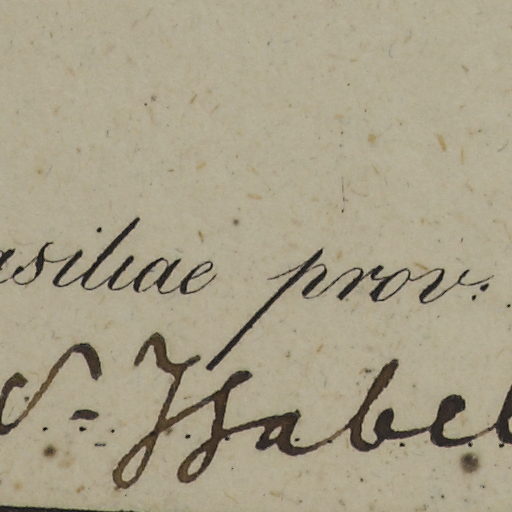 asiliae prov.
S- Isabel